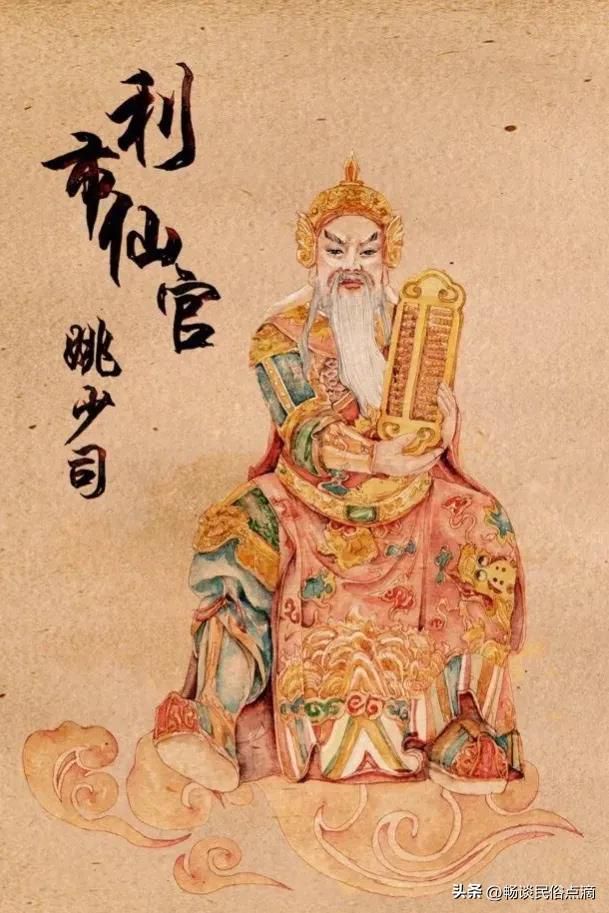 利市仙官
姚少司
头条 @畅谈民俗点滴